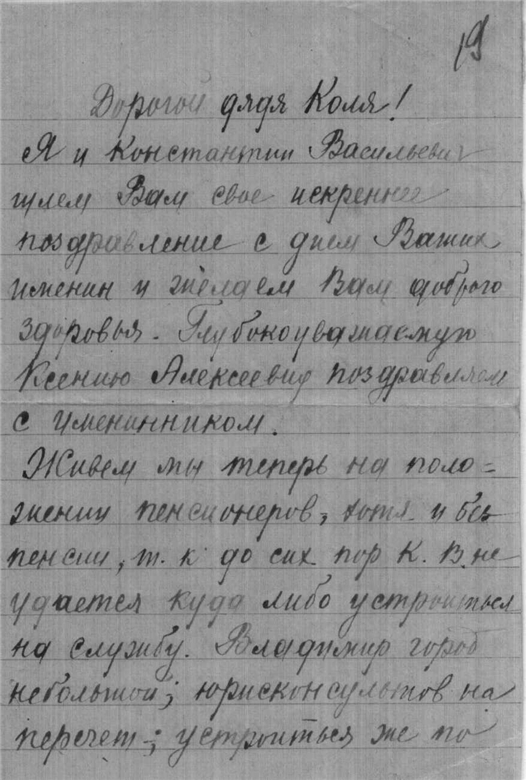 19
Дорогой дядя Коля!
Я и Константин Васильевич
шлем Вам свое искреннее
поздравление с днем Ваших
именин и желаем Вам доброго
здоровья. Глубокоуважаемую
Ксению Алексеевну поздравляем
с именинником.
Живем мы теперь на поло=
жении пенсионеров, хотя и без
пенсии, т. к до сих пор К. В. не
удается куда либо устроиться
на службу. Владимир город
небольшой; юрисконсультов на
перечет-; устроиться же по